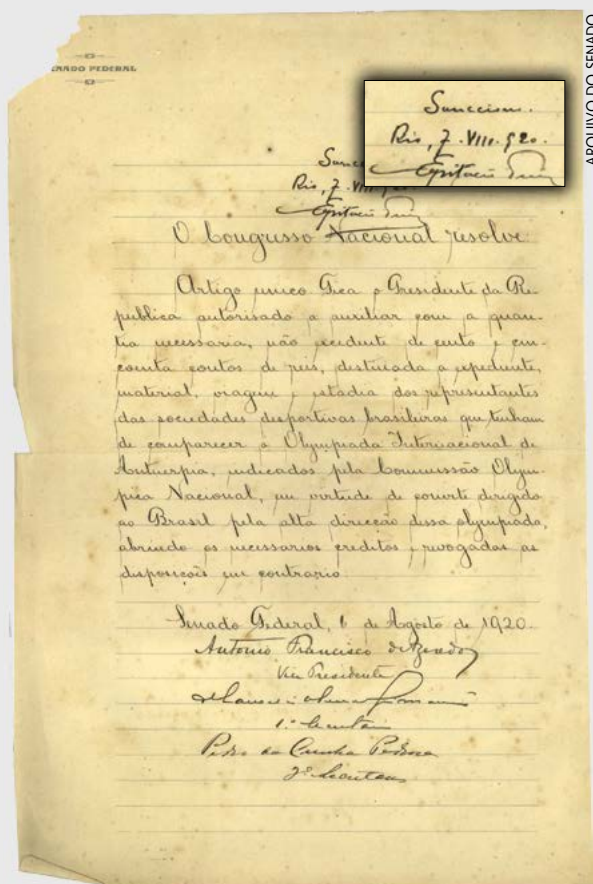 ARQUIVO DO SENADO
ENADO FEDERAL
Sancciono.
Rio, 7. VIII. 920.
Epitacio
Rio, 7. VIII
Epitacio
O Congresso Nacional resolve:
Artigo unico. Fica o Presidente da Re-
publica autorisado a auxiliar com a quan-
tia necessaria, não excedente de cento e cin-
coenta contos de reis, destinada a expediente,
material, viagem e estadia dos representantes
das sociedades desportivas brasileiras que tenham
de comparecer á Olympiada Internacional de
Antuerpia, indicados pela Commissão Olym-
pica Nacional, em virtude de convite dirigido
ao Brasil pela alta direcção dessa olympiada,
abrindo os necessarios creditos, revogadas as
disposições em contrario.
Senado Federal, 6 de Agosto de 1920.
Antonio Francisco de Azeredo
Vice Presidente
1º Secretario
Pedro da Cunha Pedrosa
2º Secretario